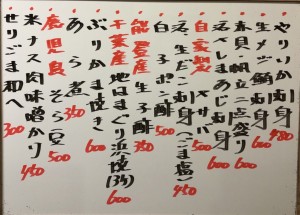 やりいか刺身 480
生メジ鮪刺身 600
赤貝帆立二点盛り 600
活〆しまあじ刺身 600
自家製〆サバ 500
名生だこ刺身(ごま塩) 450
白子ポン酢 500
能登産生子酢 350
千葉産地はまぐり浜焼(3ケ) 600
ぶりかま焼き 600
あら煮 350
鹿児島そら豆 500
米ナス肉味噌かけ 450
せりごま和へ 300